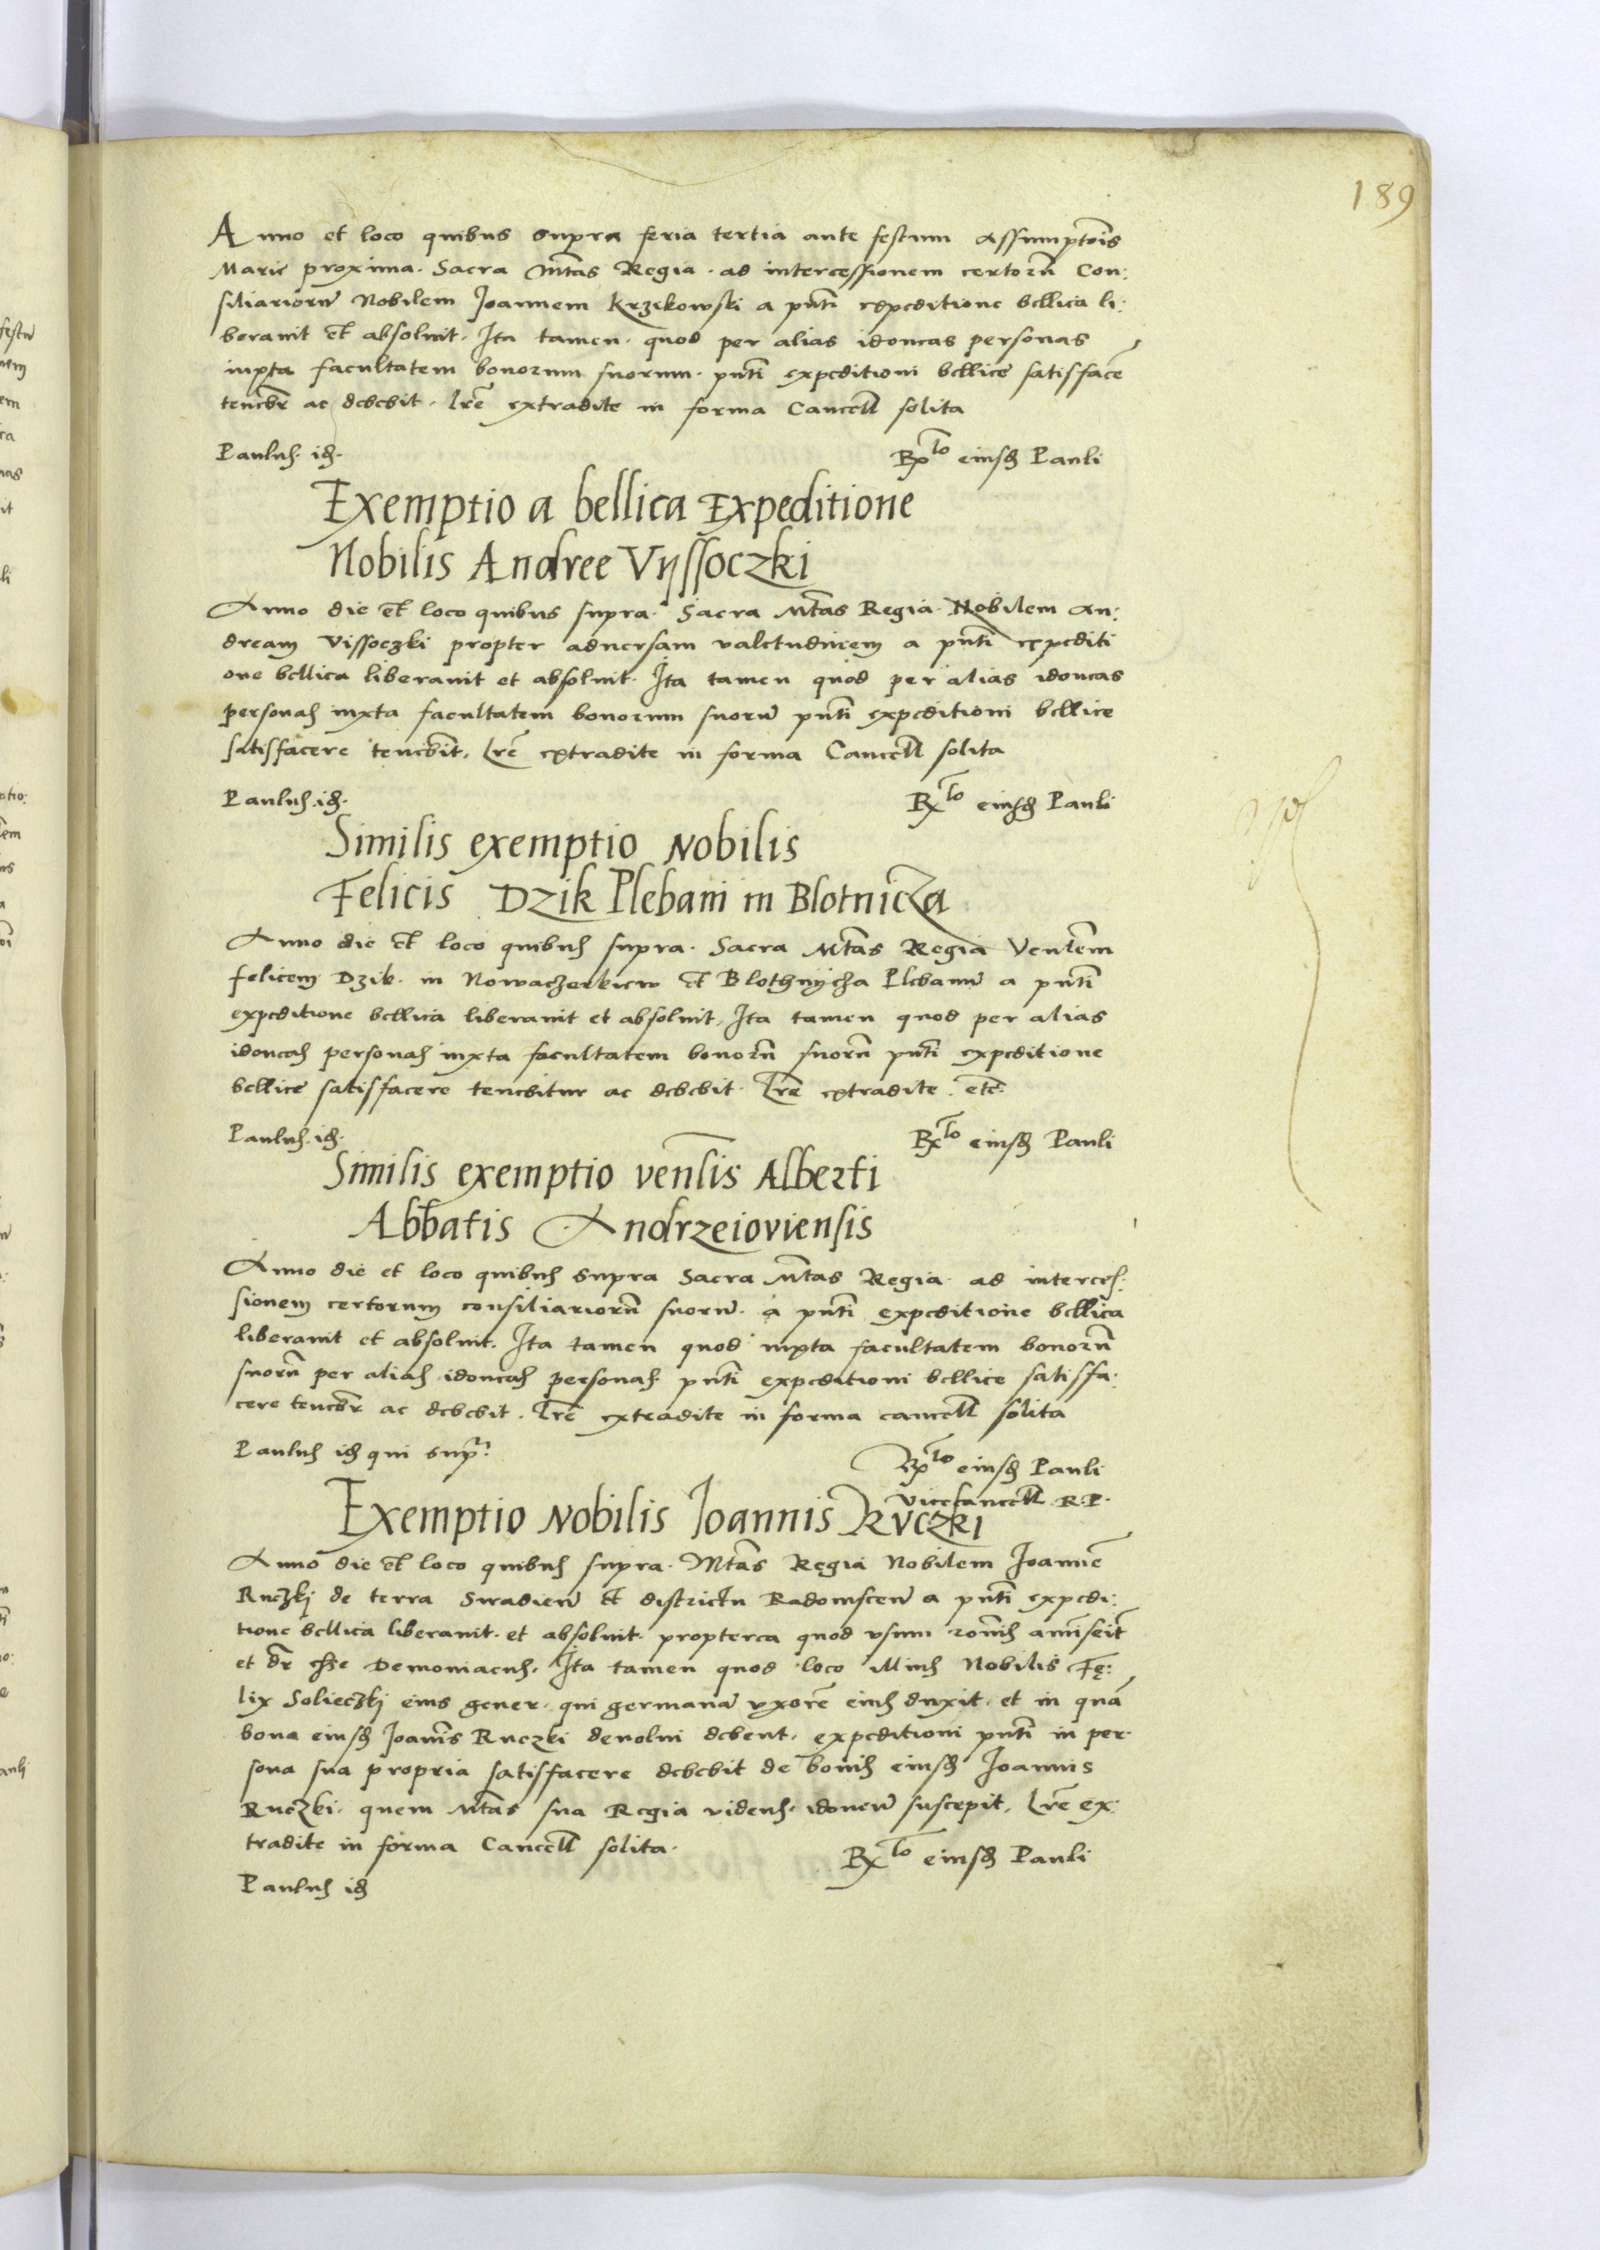 189
Anno et loco quibus supra feria tertia ante festum Assumptõis
Marie proxima. Sacra Mtas Regia. ad intercessionem certorũ Con:
siliariorũ Nobilem Joannem Krzikowski a pñti expeditione bellica li:
beravit et absolvit. Ita tamen. quod per alias idoneas personas
iuxta facultatem bonorum suorum. pñti expeditioni bellice satisfacẽ
tenebr ac debebit. Lrẽ extradite in forma Cancell solita
Paulus. id.
Rx^to eiusd Pauli
Exemptio a bellica Expeditione
Nobilis Andree Vyssoczki
Anno die et loco quibus supra. Sacra Mtas Regia. Nobilem An:
dream Vissoczki propter adversam valetudinem a pñti expediti
one bellica liberavit et absolvit. Ita tamen quod per alias idoneas
personas iuxta facultatem bonorum suorũ pñti expeditioni bellice
satisfacere tenebit. Lrẽ extradite in forma Cancell solita
Paulus. id.
Rx^to eiusd Pauli
Similis exemptio Nobilis
Felicis Dzik Plebani in Blotnicza
Anno die et loco quibus supra. Sacra Mtas Regia Venlem
felicem Dzik. in Nowaczerkiew et Blothnycha Plebanũ a pñti
expeditione bellica liberavit et absolvit. Ita tamen quod per alias
idoneas personas iuxta facultatem bonorũ suorũ pñti expeditione
bellice satisfacere tenebitur ac debebit. Lrẽ extradite. etc.
Paulus. id.
Rx^to eiusd Pauli
Similis exemptio venlis Alberti
Abbatis Andrzeioviensis
Anno die et loco quibus supra Sacra Mtas Regia. ad interces:
sionem certorum consiliariorũ suorũ. a pñti expeditione bellica
liberavit et absolvit. Ita tamen quod iuxta facultatem bonorũ
suorũ per alias idoneas personas pñti expeditioni bellice satisfa:
cere tenebr ac debebit. Lrẽ extradite in forma cancell solita
Paulus id qui supr
Rx^to eiusd Pauli
Vicecancell R. P.
Exemptio Nobilis Joannis Ruczki
Anno die et loco quibus supra. Mtas Regia Nobilem Joannẽ
Ruczkj de terra Siradieñ et districtu Radomsceñ a pñti expedi:
tione bellica liberavit. et absolvit. propterea quod usum rõnis amiserit
et dr esse Demoniacus. Ita tamen quod loco illius Nobilis Fę:
lix Solieczkj eius gener. qui germanã uxorẽ eius duxit. et in quã
bona eiusd Joanis Ruczki devolvi debent. expeditioni pñti in per
sona sua propria satisfacere debebit de bonis eiusd Joannis
Ruczki. quem Mtas sua Regia videns. idoneũ suscepit. Lrẽ ex:
tradite in forma Cancell solita.
Rx^to eiusd Pauli
Paulus id